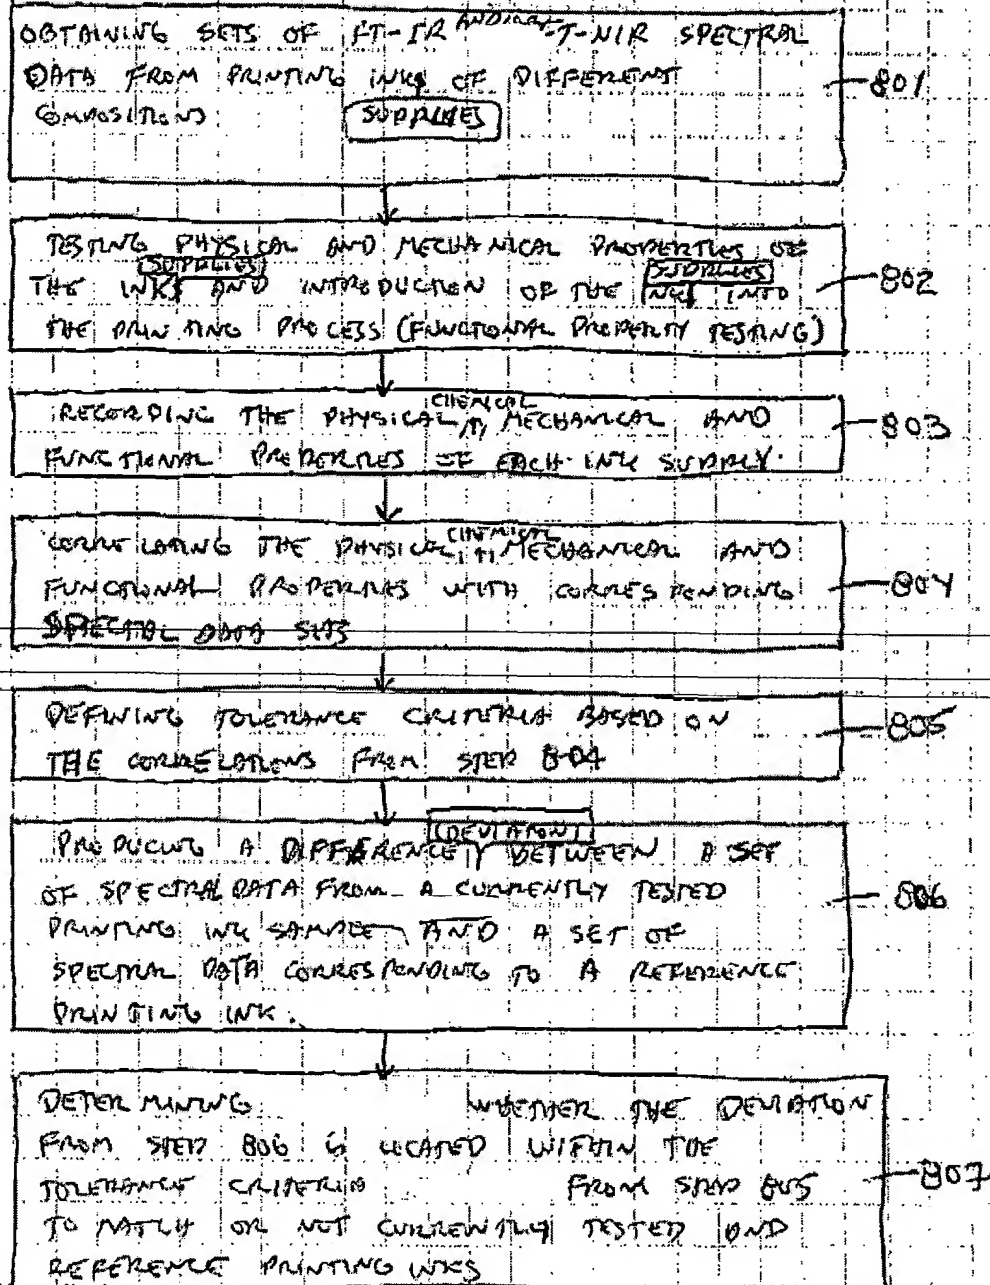 OBTAINING SETS OF FT-IR AND/OR FT-NIR SPECTRAL
DATA FROM PRINTING INKS OF DIFFERENT
COMPOSITIONS SUPPLIES
801
TESTING PHYSICAL AND MECHANICAL PROPERTIES OF
SUPPLIES SUPPLIES
THE INKS AND INTRODUCTION OF THE INKS INTO
THE PRINTING PROCESS (FUNCTIONAL PROPERTY TESTING)
802
CHEMICAL
RECORDING THE PHYSICAL, MECHANICAL AND
FUNCTIONAL PROPERTIES OF EACH INK SUPPLY.
803
CHEMICAL
CORRELATING THE PHYSICAL, MECHANICAL AND
FUNCTIONAL PROPERTIES WITH CORRESPONDING
SPECTRAL DATA SETS
804
DEFINING TOLERANCE CRITERIA BASED ON
THE CORRELATIONS FROM STEP 804
805
(DEVIATION)
PRODUCING A DIFFERENCE BETWEEN A SET
OF SPECTRAL DATA FROM A CURRENTLY TESTED
PRINTING INK SAMPLE AND A SET OF
SPECTRAL DATA CORRESPONDING TO A REFERENCE
PRINTING INK.
806
DETERMINING WHETHER THE DEVIATION
FROM STEP 806 IS LOCATED WITHIN THE
TOLERANCE CRITERIA FROM STEP 805
TO MATCH OR NOT CURRENTLY TESTED AND
REFERENCE PRINTING INKS
807